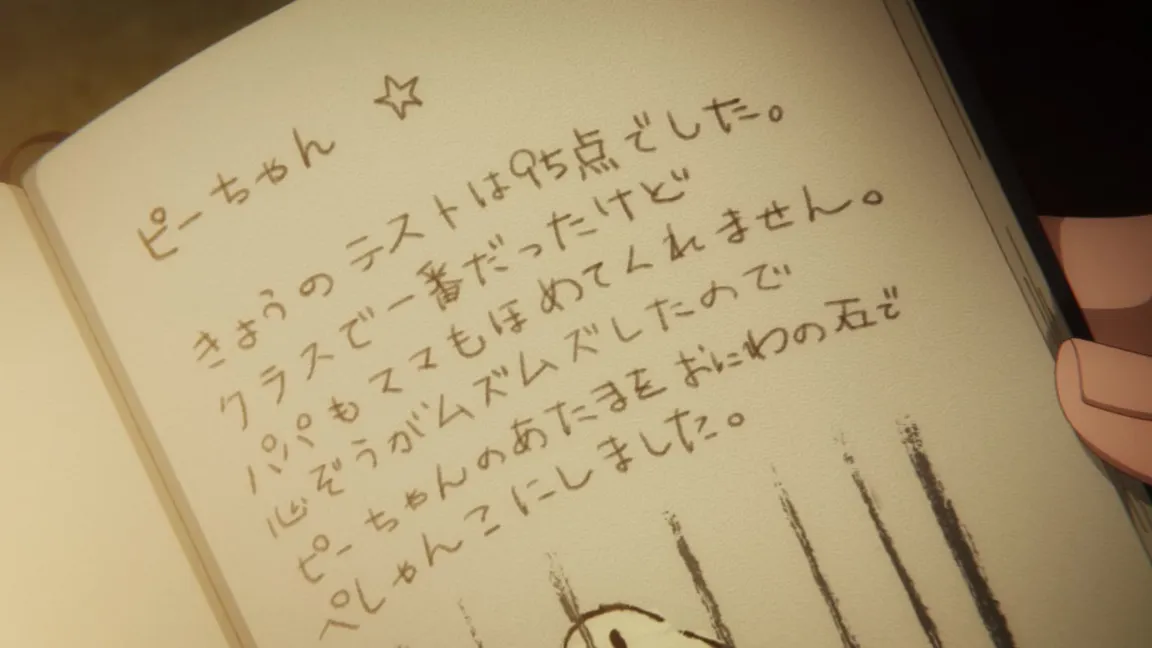 ピーちゃん ☆
きょうのテストは95点でした。
クラスで一番だったけど
パパもママもほめてくれません。
心ぞうがムズムズしたので
ピーちゃんのあたまをおにわの石で
ぺしゃんこにしました。